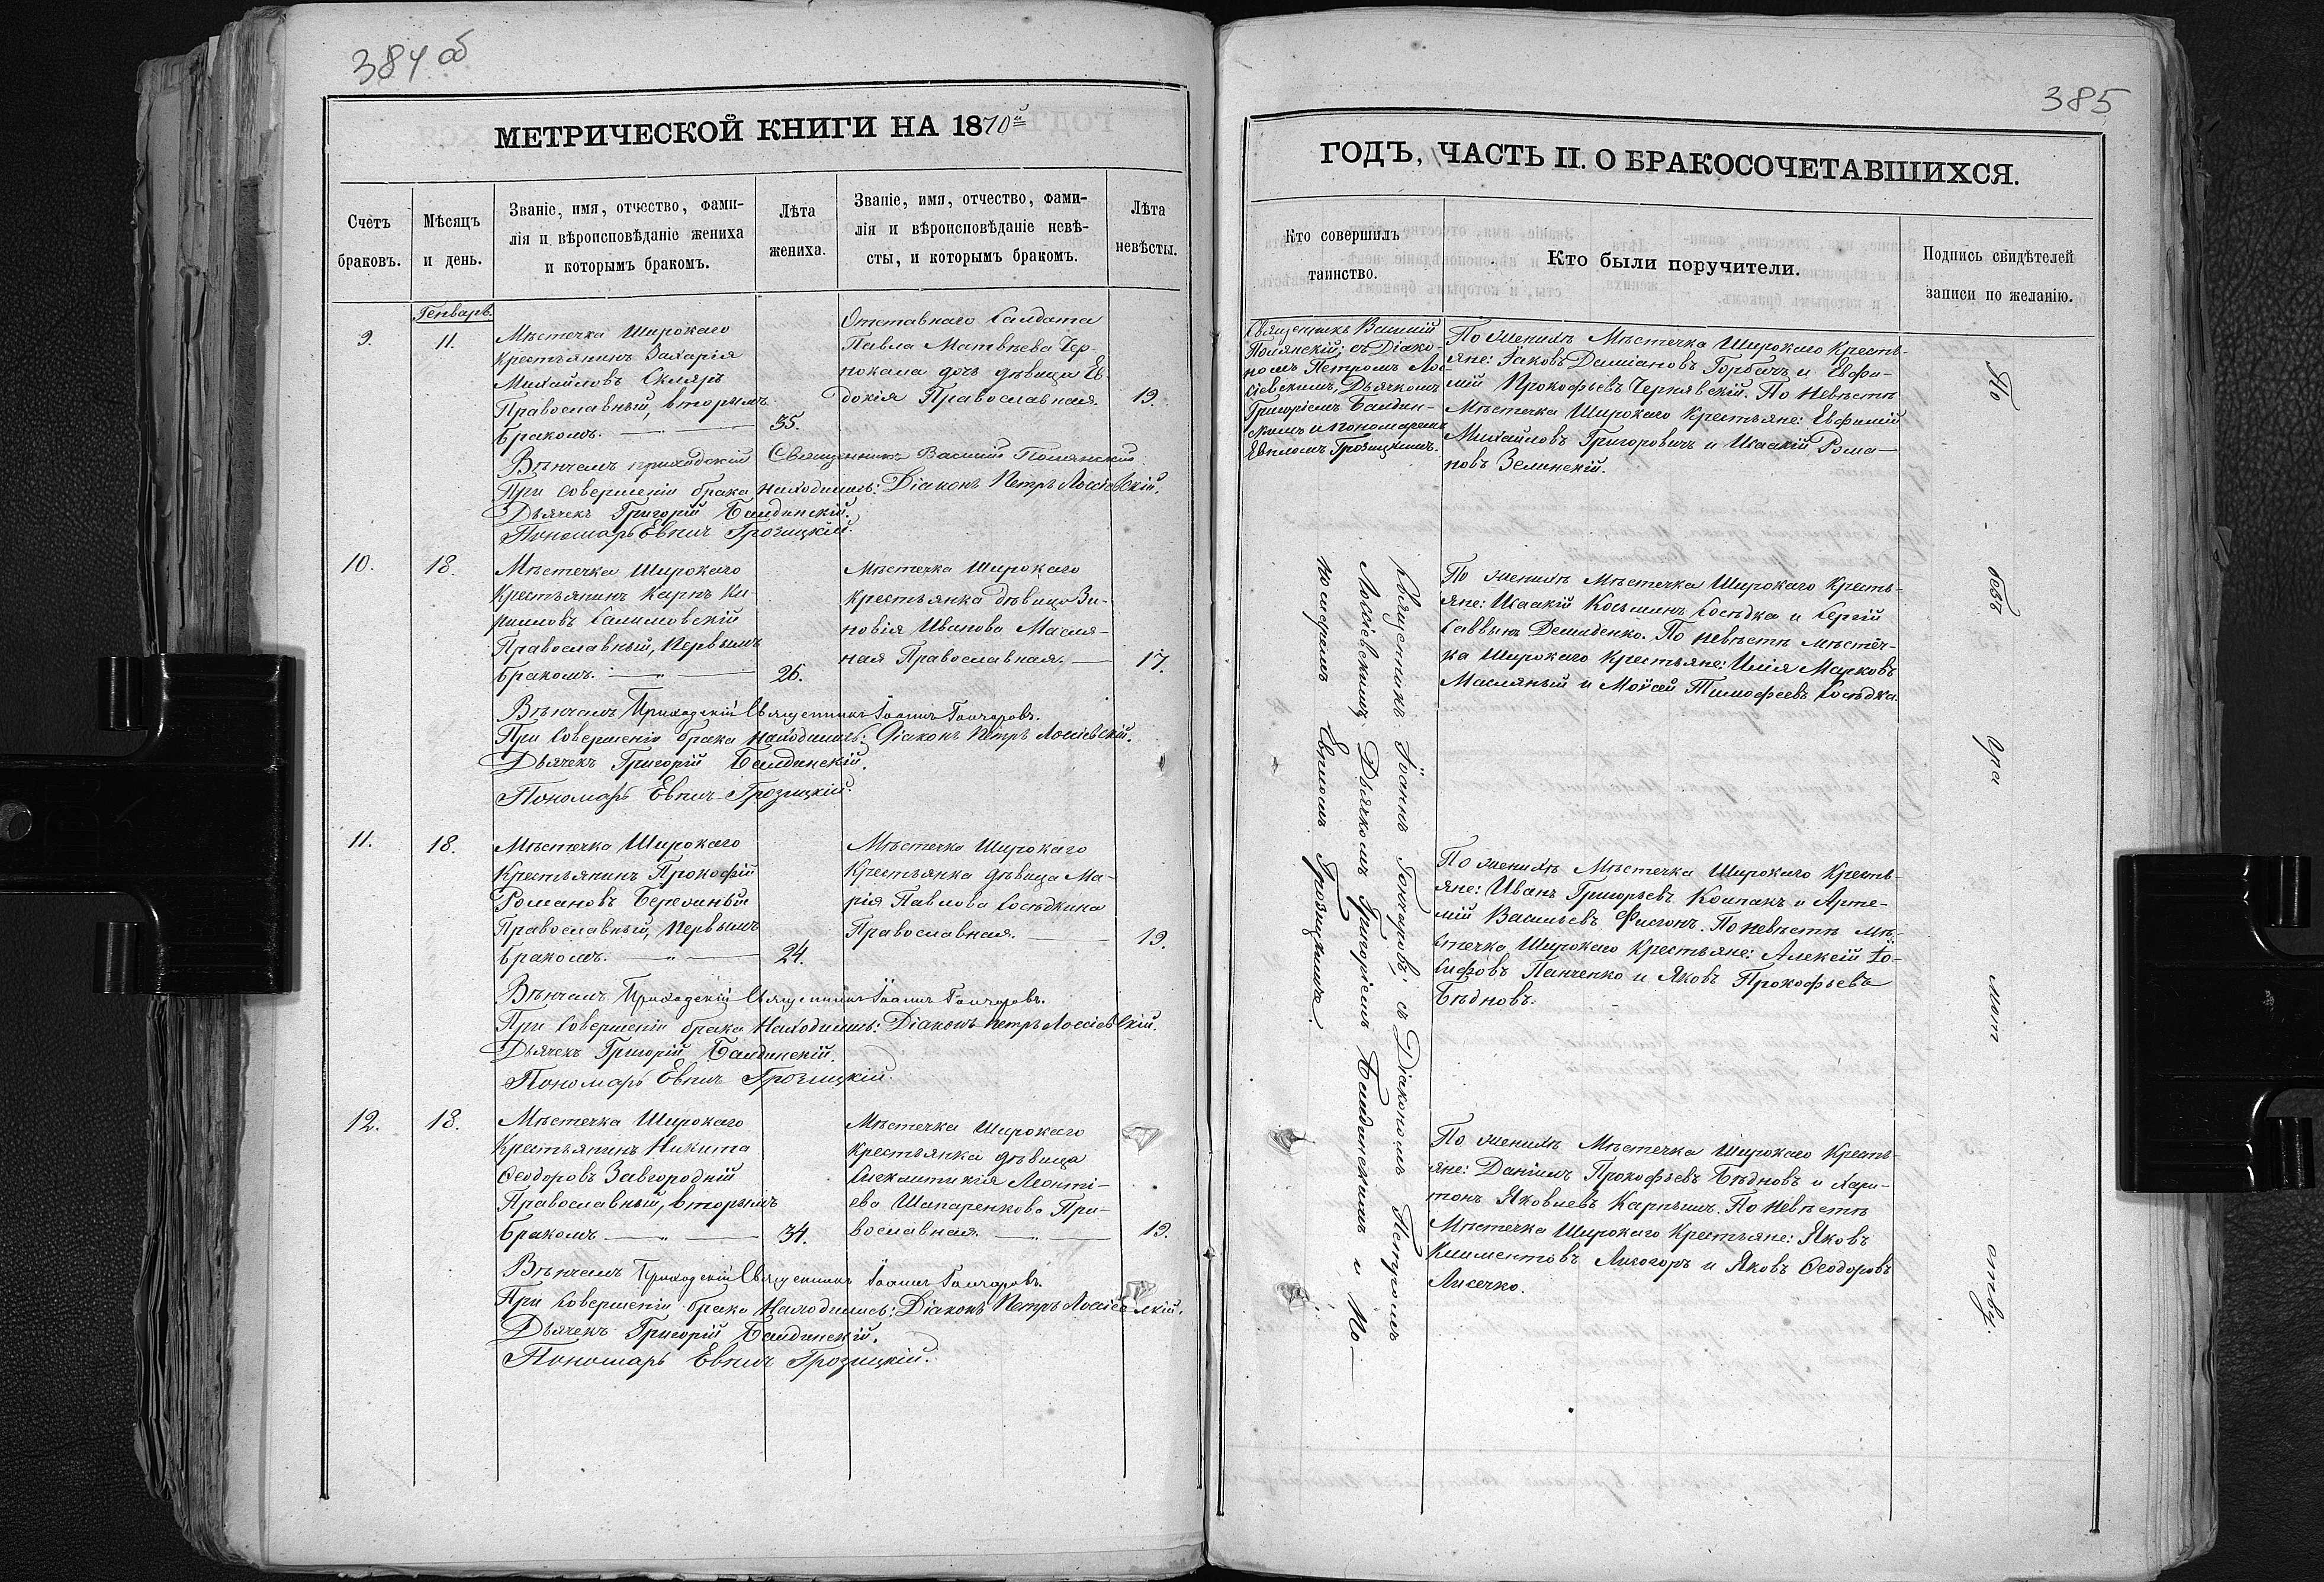 384 об
МЕТРИЧЕСКОЙ КНИГИ НА 1870й
Счетъ
браковъ.
Мѣсяцъ
и день.
Званіе, имя, отчество, фами-
лія и вѣроисповѣданіе жениха
и которымъ бракомъ.
Лѣта
жениха.
Званіе, имя, отчество, фами-
лія и вѣроисповѣданіе невѣ-
сты, и которымъ бракомъ.
Лѣта
невѣсты.
Генварь.
9.
11.
Мѣстечка Широкаго
Крестьянинъ Захарія
Михайловъ Скляръ
Православный, вторымъ
бракомъ.
35.
Отставнаго Салдата
Павла Матвѣева Чер-
нокала дочь дѣвица Ев-
докія Православная.
19.
Вѣнчалъ приходскій Священникъ Василій Полянскій
При совершеніи брака находились: Діаконъ Петръ Лоссіевскій.
Дьячекъ Григорій Балдинскій.
Пономарь Евпилъ Грозицкій.
10.
18.
Мѣстечка Широкаго
Крестьянинъ Карпъ Ки-
рилловъ Салимовскій
Православный, первымъ
бракомъ.
26.
Мѣстечка Широкаго
крестьянка дѣвица Зи-
новія Иванова Масля-
ная Православная.
17.
Вѣнчалъ Приходскій Священникъ Іоаннъ Гончаровъ.
При совершеніи брака находились: Діаконъ Петръ Лоссіевскій.
Дьячекъ Григорій Балдинскій.
Пономарь Евпилъ Грозицкій.
11.
18.
Мѣстечка Широкаго
Крестьянинъ Прокофій
Романовъ Береливый
Православный, первымъ
бракомъ.
24.
Мѣстечка Широкаго
Крестьянка дѣвица Ма-
рія Павлова Сосѣдкина
Православная.
19.
Вѣнчалъ Приходскій Священникъ Іоаннъ Гончаровъ.
При совершеніи брака находились: Діаконъ Петръ Лоссіевскій.
Дьячекъ Григорій Балдинскій.
Пономарь Евпилъ Грозицкій.
12.
18.
Мѣстечка Широкаго
Крестьянинъ Никита
Ѳеодоровъ Завгородній
Православный, вторымъ
бракомъ
34.
Мѣстечка Широкаго
Крестьянка дѣвица
Леонті-
ева Шапаренкова Пра-
вославная.
19.
Вѣнчалъ Приходскій Священникъ Іоаннъ Гончаровъ.
При совершеніи брака находились: Діаконъ Петръ Лоссіевскій.
Дьячекъ Григорій Балдинскій.
Пономарь Евпилъ Грозицкій.
385
ГОДЪ, ЧАСТЬ II. О БРАКОСОЧЕТАВШИХСЯ.
Кто совершилъ
таинство.
Кто были поручители.
Подпись свидѣтелей
записи по желанію.
Священникъ Василій
Полянскій; съ Діако-
номъ Петромъ Лос-
сіевскимъ, Дьячкомъ
Григоріемъ Балдин-
скимъ и пономаремъ
Евпломъ Грозицкимъ.
По женихѣ Мѣстечка Широкаго Кресть-
яне: Іаковъ Даміановъ Горбачъ и Евфи-
мій Прокофьевъ Чернявскій. По Невѣстѣ
Мѣстечка Широкаго Крестьяне: Евфимій
Михайловъ Григоровичъ и Исаакій Рома-
новъ Зелинскій.
Священникъ Іоаннъ Гончаровъ; съ Діакономъ Петромъ
Лоссіевскимъ, Дьячкомъ Григоріемъ Балдинскимъ и По-
номаремъ Евпломъ Грозицкимъ.
По женихѣ Мѣстечка Широкаго Кресть-
яне: Исаакій Косьминъ Сосѣдка и Сергій
Саввинъ Демиденко. По невѣстѣ мѣстеч-
ка Широкаго Крестьяне: Илія Марковъ
Масляный и Моѵсей Тимофеевъ Сосѣдка.
По женихѣ Мѣстечка Широкаго Кресть-
яне: Иванъ Григорьевъ Колпакъ и Арте-
мій Васильевъ Фисгонъ. По невѣстѣ Мѣ-
стечка Широкаго Крестьяне: Алексій Іо-
сифовъ Панченко и Яковъ Прокофьевъ
Бѣдновъ.
По женихѣ Мѣстечка Широкаго Кресть-
яне: Даніилъ Прокофьевъ Бѣдновъ и Хари-
тонъ Яковлевъ Карпышъ. По Невѣстѣ
Мѣстечка Широкаго Крестьяне: Яковъ
Климентовъ Лихогоръ и Яковъ Ѳеодоровъ
Лисечко.
По - без гра мот ству.